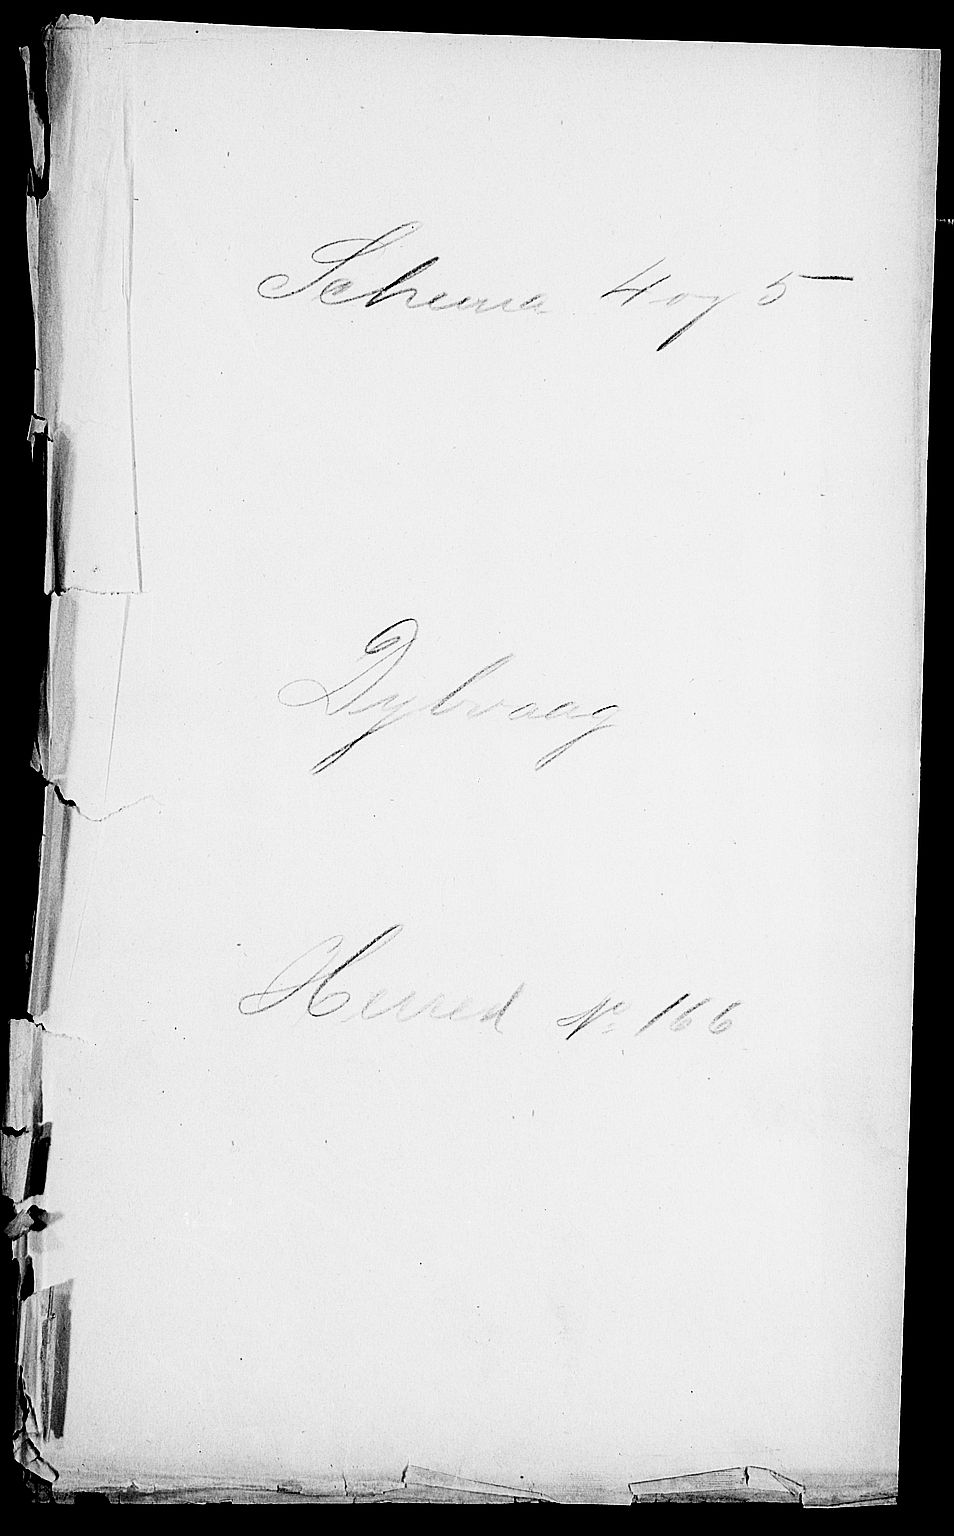 Schema 4 og 5
Dybvaag
Herred No. 166